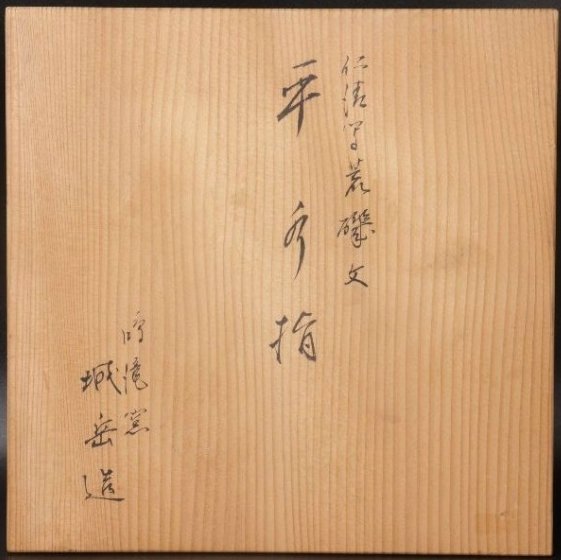 仁清写荒磯文
平水指
鳴滝窯
城岳造